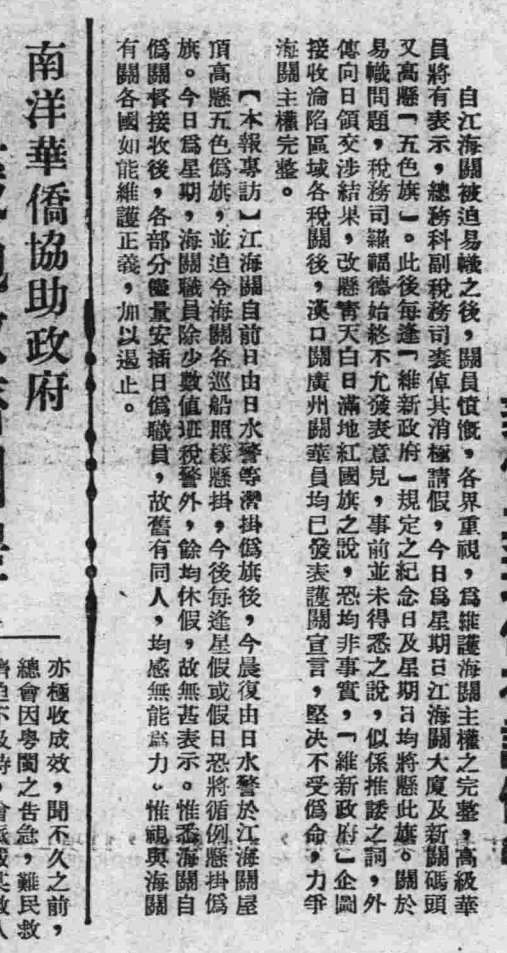 自江海關被迫易幟之後，關員憤慨，各界重視，爲維護海關主權之完整，高級華
員將有表示，總務科副稅務司裘倬其消極請假，今日爲星期日江海關大廈及新關碼頭
又高懸「五色旗」。此後每逢「維新政府」規定之紀念日及星期日均將懸此旗。關於
易幟問題，稅務司羅福德始終不允發表意見，事前並未得悉之說，似係推諉之詞，外
傳向日領交涉結果，改懸靑天白日滿地紅國旗之說，恐均非事實，「維新政府」企圖
接收淪陷區域各稅關後，漢口關廣州關華員均已發表護關宣言，堅决不受僞命，力爭
海關主權完整。
【本報專訪】江海關自前日由日水警等潛掛僞旗後，今晨復由日水警於江海關屋
頂高懸五色僞旗，並迫令海關各巡船照樣懸掛，今後每逢星假或假日恐將循例懸掛僞
旗。今日爲星期，海關職員除少數值班稅警外，餘均休假，故無甚表示。惟悉海關自
僞關督接收後，各部分儘量安插日僞職員，故舊有同人，均感無能爲力。惟視與海關
有關各國如能維護正義，加以遏止。
南洋華僑協助政府
亦極收成效，聞不久之前，
總會因粤閩之告急，難民救